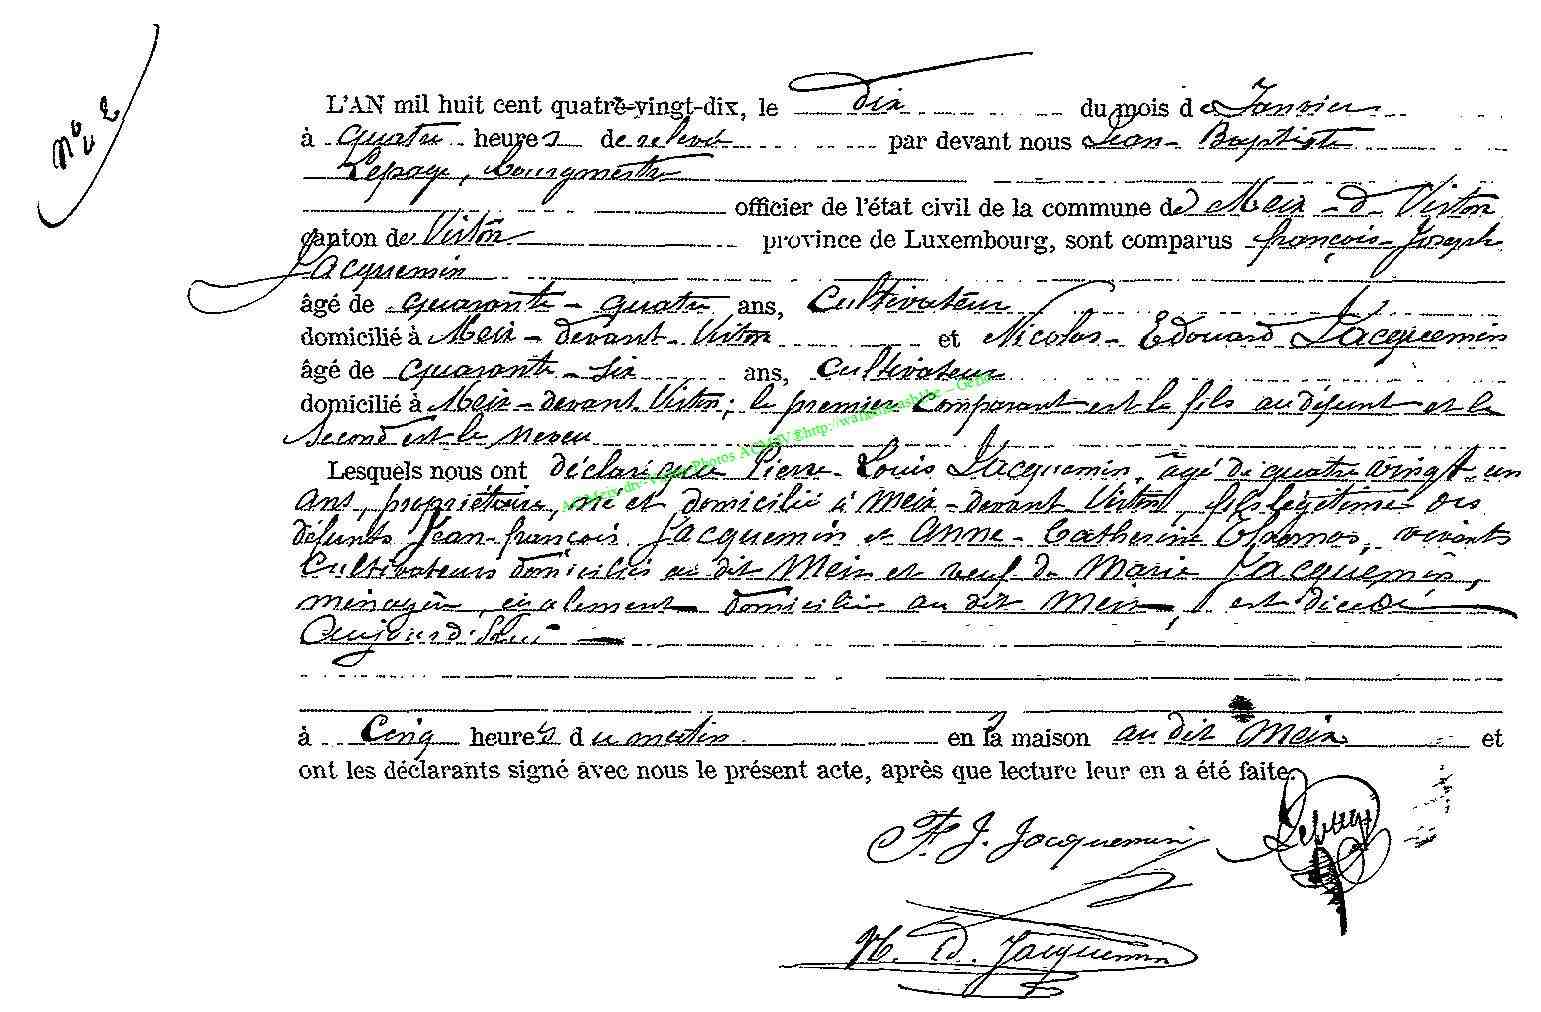 N° 2
L'AN mil huit cent quatre-vingt-dix, le dix du mois de Janvier
à quatre heures de relevée par devant nous Jean-Baptiste
Lepage, bourgmestre
officier de l'état civil de la commune de Meix-d-Virton
canton de Virton province de Luxembourg, sont comparus françois-Joseph
Jacquemin
âgé de quarante-quatre ans, Cultivateur
domicilié à Meix-devant-Virton et Nicolas-Edouard Jacquemin
âgé de quarante-six ans, Cultivateur
domicilié à Meix-devant-Virton; le premier comparant est le fils au défunt et le
Second est le neveu
Lesquels nous ont déclaré que Pierre-Louis Jacquemin, âgé de quatre vingt un
ans, propriétaire, né et domicilié à Meix-devant Virton, fils légitime des
défunts Jean-françois Jacquemin et Anne-Catherine Thomas, vivants
Cultivateurs domiciliés au dit Meix et veuf de Marie Jacquemin,
ménagère, également domiciliée au dit Meix, est décédé
aujourd'hui
à Cinq heures du matin en la maison au dit Meix et
ont les déclarants signé avec nous le présent acte, après que lecture leur en a été faite.
F. J. Jacquemin Lepage
N. Ed. Jacquemin